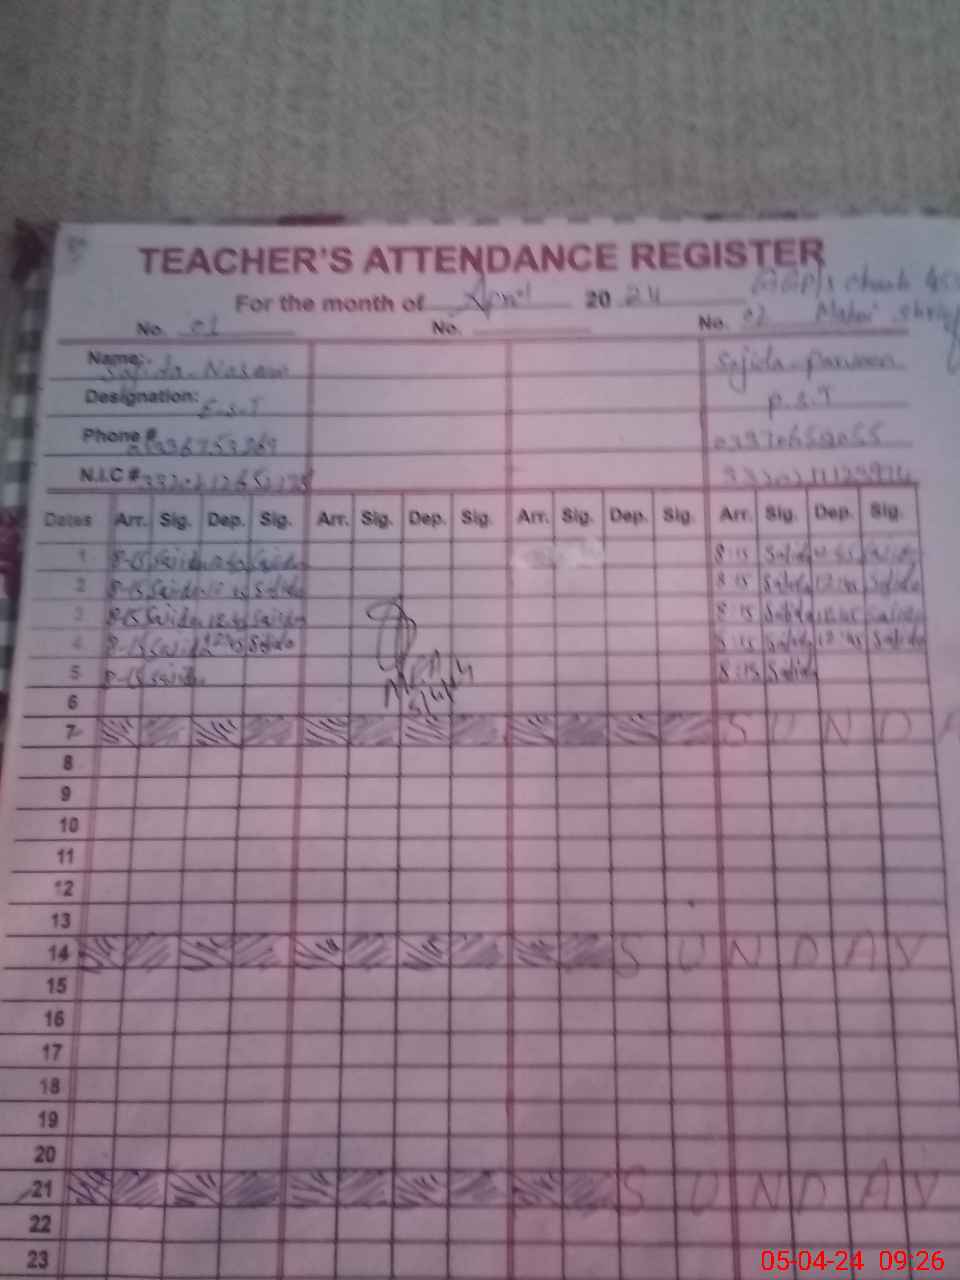 TEACHER'S ATTENDANCE REGISTER
For the month of April 20 24
No. 01 No. No. 02
Name:- Sajida Sajida Parveen
Designation: E.S.T P.S.T
Phone #
N.I.C #
Dates Arr. Sig. Dep. Sig. Arr. Sig. Dep. Sig. Arr. Sig. Dep. Sig. Arr. Sig. Dep. Sig.
1 8-15 Sajida Sajida 8:15 Sajida Sajida
2 8-15 Sajida Sajida 8:15 Sajida 12:45 Sajida
3 8-15 Sajida 12:45 Sajida 8:15 Sajida 12:45 Sajida
4 8-15 Sajida 12:45 Sajida 8:15 Sajida 12:45 Sajida
5 8-15 Sajida 8:15 Sajida
6
7 S U N D A
8
9
10
11
12
13
14 S U N D A Y
15
16
17
18
19
20
21 S U N D A Y
22
23
05-04-24 09:26